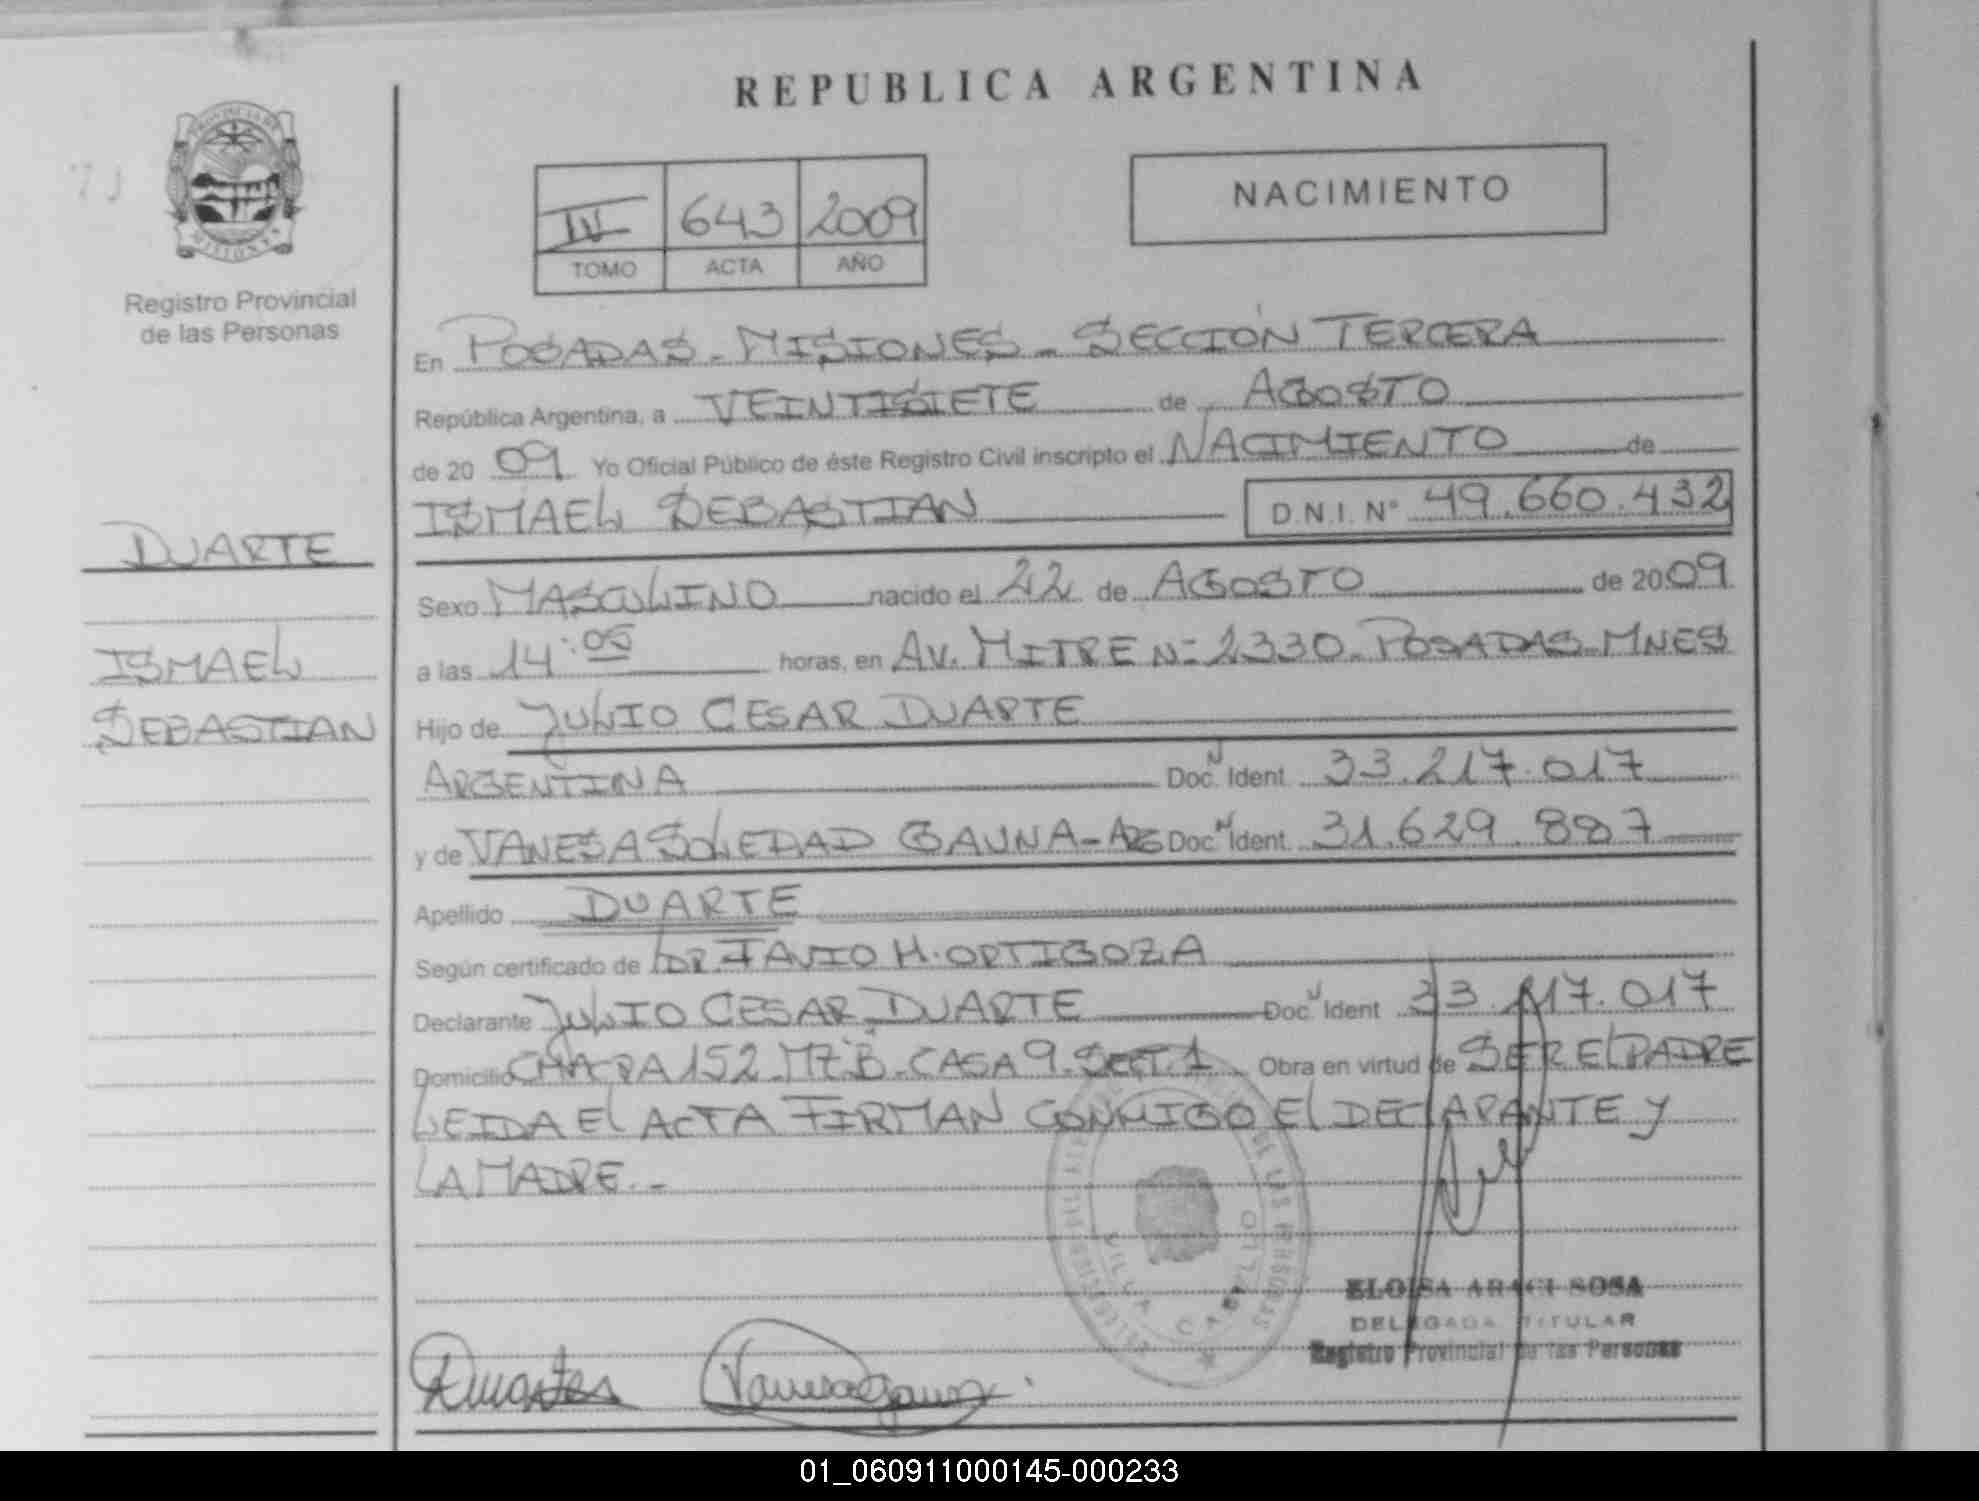 REPUBLICA ARGENTINA
PROVINCIA DE
MISIONES
Registro Provincial
de las Personas
IV 643 2009
TOMO ACTA AÑO
NACIMIENTO
En POSADAS - MISIONES - SECCIÓN TERCERA
República Argentina, a VEINTISIETE de AGOSTO
de 20 09 Yo Oficial Público de éste Registro Civil inscripto el NACIMIENTO de
ISMAEL SEBASTIAN D.N.I. N° 49.660.432
DUARTE
ISMAEL
SEBASTIAN
Sexo MASCULINO nacido el 22 de AGOSTO de 2009
a las 14:05 horas, en AV. MITRE N= 2330. POSADAS-MNES
Hijo de JULIO CESAR DUARTE
ARGENTINA Doc. Ident. 33.217.017
y de VANESA SOLEDAD GAUNA - ARG Doc. Ident. 31.629.887
Apellido DUARTE
Según certificado de DR. H. ORTIGOZA
Declarante JULIO CESAR DUARTE Doc. Ident 33.217.017
Domicilio CHACRA 152. MZ B. CASA 9. SECT. 1 Obra en virtud de SER EL PADRE
LEIDA EL ACTA FIRMAN CONMIGO EL DECLARANTE Y
LA MADRE.-
DE LAS PERSONAS
VILLA CABELLO
ELOISA ARACI SOSA
DELEGADA TITULAR
Registro Provincial de las Personas
01_060911000145-000233